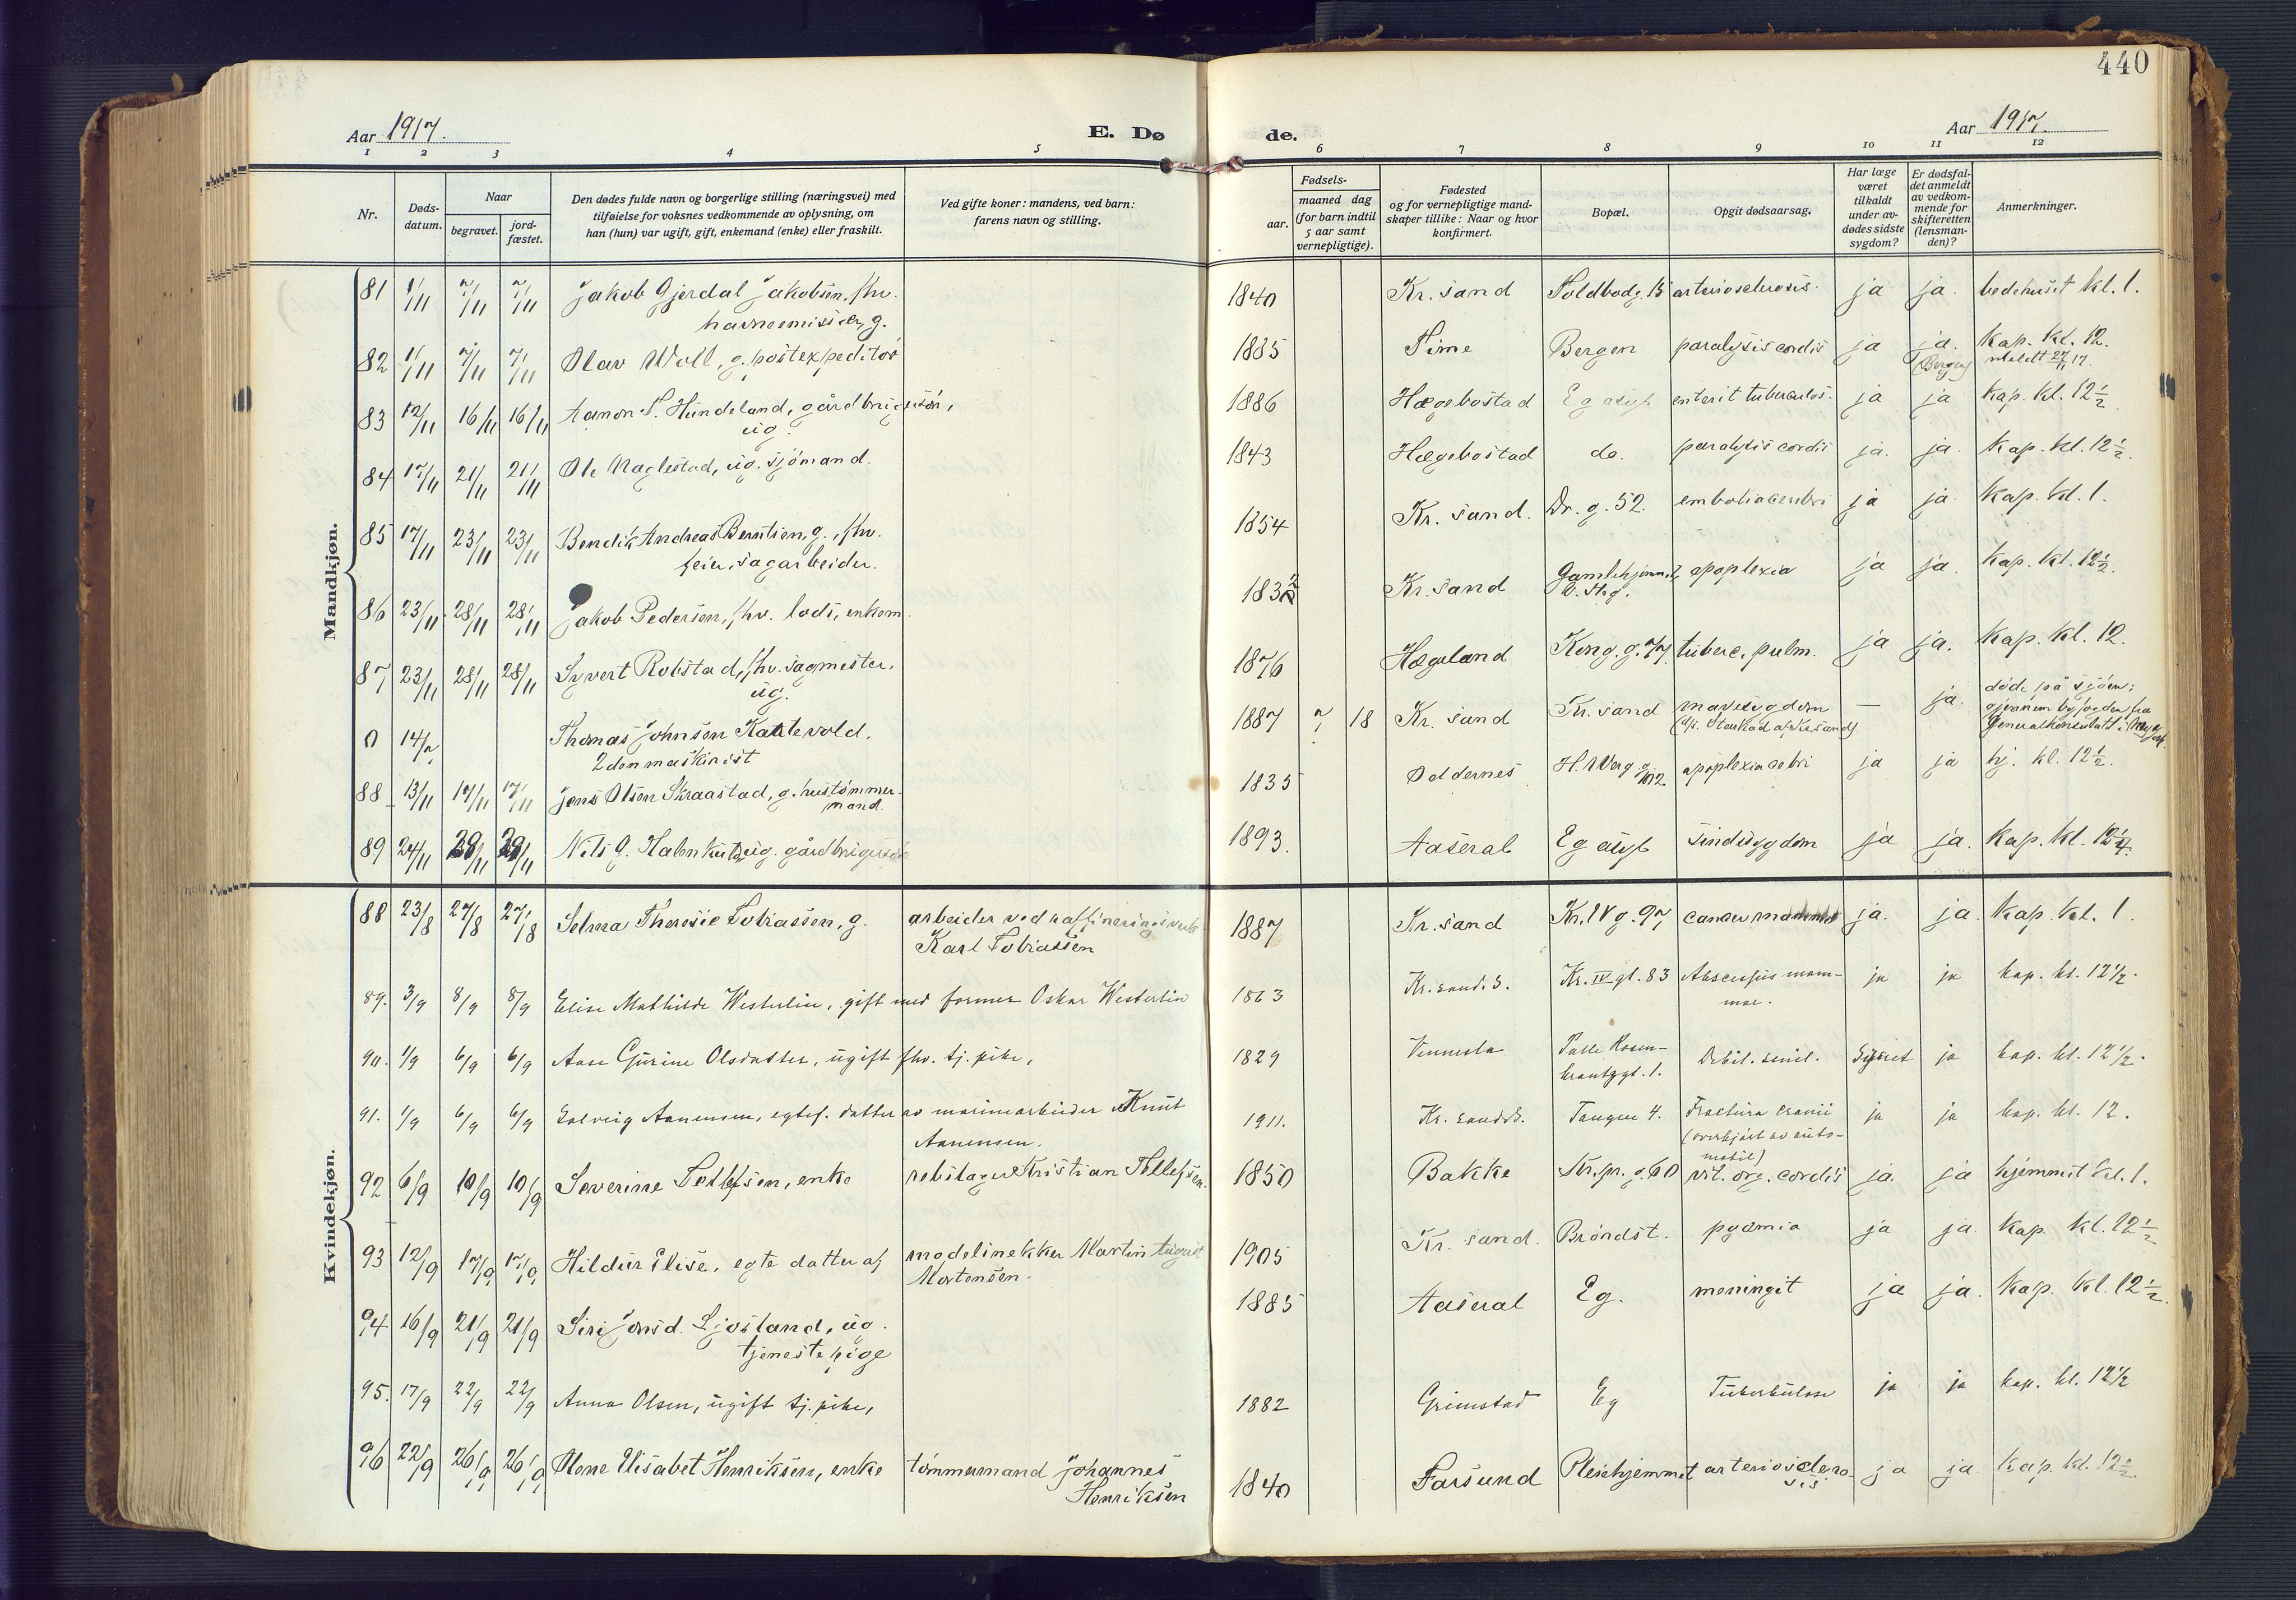 440
Aar 1917.
E. Dø
de.
Aar 1917.
1 2 3 4 5 6 7 8 9 10 11 12
Nr.
Døds-
datum.
Naar
begravet.
jord-
fæstet.
Den dødes fulde navn og borgerlige stilling (næringsvei) med
tilføielse for voksnes vedkommende av oplysning, om
han (hun) var ugift, gift, enkemand (enke) eller fraskilt.
Ved gifte koner: mandens, ved barn:
farens navn og stilling.
Fødsels-
aar.
maaned dag
(for barn indtil
5 aar samt
vernepligtige).
Fødested
og for vernepligtige mand-
skaper tillike: Naar og hvor
konfirmert.
Bopæl.
Opgit dødsaarsag.
Har læge
været
tilkaldt
under av-
dødes sidste
sygdom?
Er dødsfal-
det anmeldt
av vedkom-
mende for
skifteretten
(lensman-
den)?
Anmerkninger.
Mandkjøn.
81 1/11 7/11 7/11 Jakob Gjerdal Jakobsen, fhv. 1840 Kr. sand Toldbodg. 15 arteriosclerosis. ja ja. bedehuset kl. 1.
havnemisser, g.
82 1/11 7/11 7/11 Olav Woll, g. postexpeditør 1835 Time Bergen paralysis cordis ja ja. Kap. kl. 12.
(Bergen) meldt 27/11 17.
83 12/11 16/11 16/11 Aanon T. Hundeland, gårdbrugersøn, 1886 Hægebostad Eg asyl enterit tuberculos. ja ja Kap. kl. 12 1/2
ug.
84 17/11 21/11 21/11 Ole Naglestad, ug. sjömand. 1843 Hægebostad do. paralysis cordis ja. ja. Kap. kl. 12 1/2.
85 17/11 23/11 23/11 Bendik Andreas Berntsen, g., fhv. 1854 Kr. sand. Dr. g. 52. embolia cerebri ja ja. Kap. kl. 1.
feier, sagarbeider.
86 23/11 28/11 28/11 Jakob Pedersen, fhv. lods, enkem. 1832 Kr. sand Gamlehjemmet, apoplexia ja ja. Kap. kl. 12 1/2.
87 23/11 28/11 28/11 Syvert Robstad, fhv. sagmester, 1876 Hægeland Kong. g. 77 tuberc. pulm. ja ja. Kap. kl. 12.
ug.
0 14/7 Thomas Johnsen Kattevold, 1887 7 18 Kr. sand Kr. sand mavesygdom — ja. døde på sjøen;
2den maskinist
generalkonsulatet i
88 13/11 17/11 17/11 Jens Olsen Skraastad, g. hustømmer- 1835 Oddernes H. Werg. g. 102 apoplexia cebri ja ja hj. kl. 12 1/2.
mand.
89 24/11 29/11 29/11 Nils G. ug. gårdbrugersøn 1893. Aaseral Eg asyl sindssygdom ja ja. Kap. kl. 12 1/4.
Kvindekjøn.
88 23/8 27/8 27/8 Selma Theresie Tobiassen, g. arbeider ved raffineringsverk 1887 Kr. sand Kr. IV g. 97 cancer mammae ja. ja. Kap. kl. 1.
Karl Tobiassen
89. 3/9 8/9 8/9 Elise Mathilde Westerlin, gift med former Oskar Westerlin 1863 Kr. sand. S. Kr. IV gt. 83 Abscessus mam- ja ja kap. kl. 12 1/2.
mae.
90. 1/9 6/9 6/9 Aase Gurine Olsdatter, ugift fhv. tj. pike, 1829 Vennesla Palle Rosen- Debil. senil. ja kap. kl. 12 1/2.
krantzgt. 1.
91. 1/9 6/9 6/9 Solveig Aanensen, egtef. datter av marinearbeider Knut 1911. Kr. sand S. Tangen 4. Fractura cranii ja ja kap. kl. 12.
Aanensen. (overkjørt av auto-
mobil)
92 6/9 10/9 10/9 Severine Tellefsen, enke rebslager Kristian Tellefsen. 1850 Bakke Kr. pr. g. 60 vit. org. cordis ja. ja hjemmet kl. 1.
93 12/9 17/9 17/9 Hildur Elise, egte datter af modelsnekker Martin August 1905 Kr. sand. Brøndst. pyæmia ja ja. Kap kl. 12 1/2
Mortensen.
94 16/9 21/9 21/9 Siri Jonsd. Ljosland, ug. 1885 Aaseral Eg. meningit ja ja. Kap. kl. 12 1/2.
tjenestepige
95. 17/9 22/9 22/9 Anna Olsen, ugift tj. pike, 1882 Grimstad Eg Tuberkulose ja ja kap. kl. 12 1/2
96 22/9 26/9 26/9 Olene Elisabet Henriksen, enke tømmermand Johannes 1840 Farsund Pleiehjemmet arterioslero- ja ja. Kap. kl. 12 1/2.
Henriksen sis